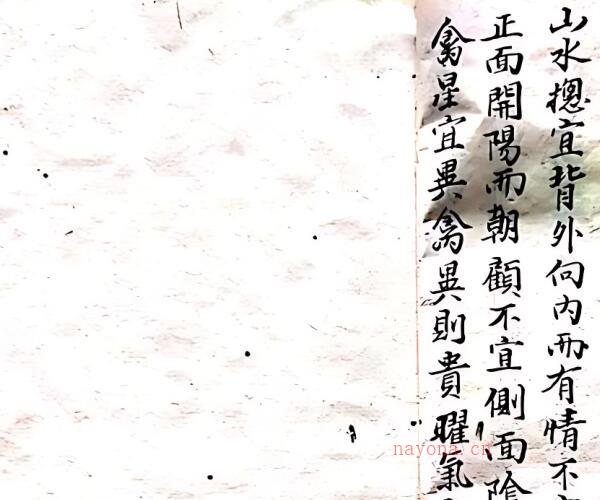 山水揔宜背外向内而有情不
正面開陽而朝顧不宜側面陰
禽星宜異禽異則貴曜氣
nayona.cn